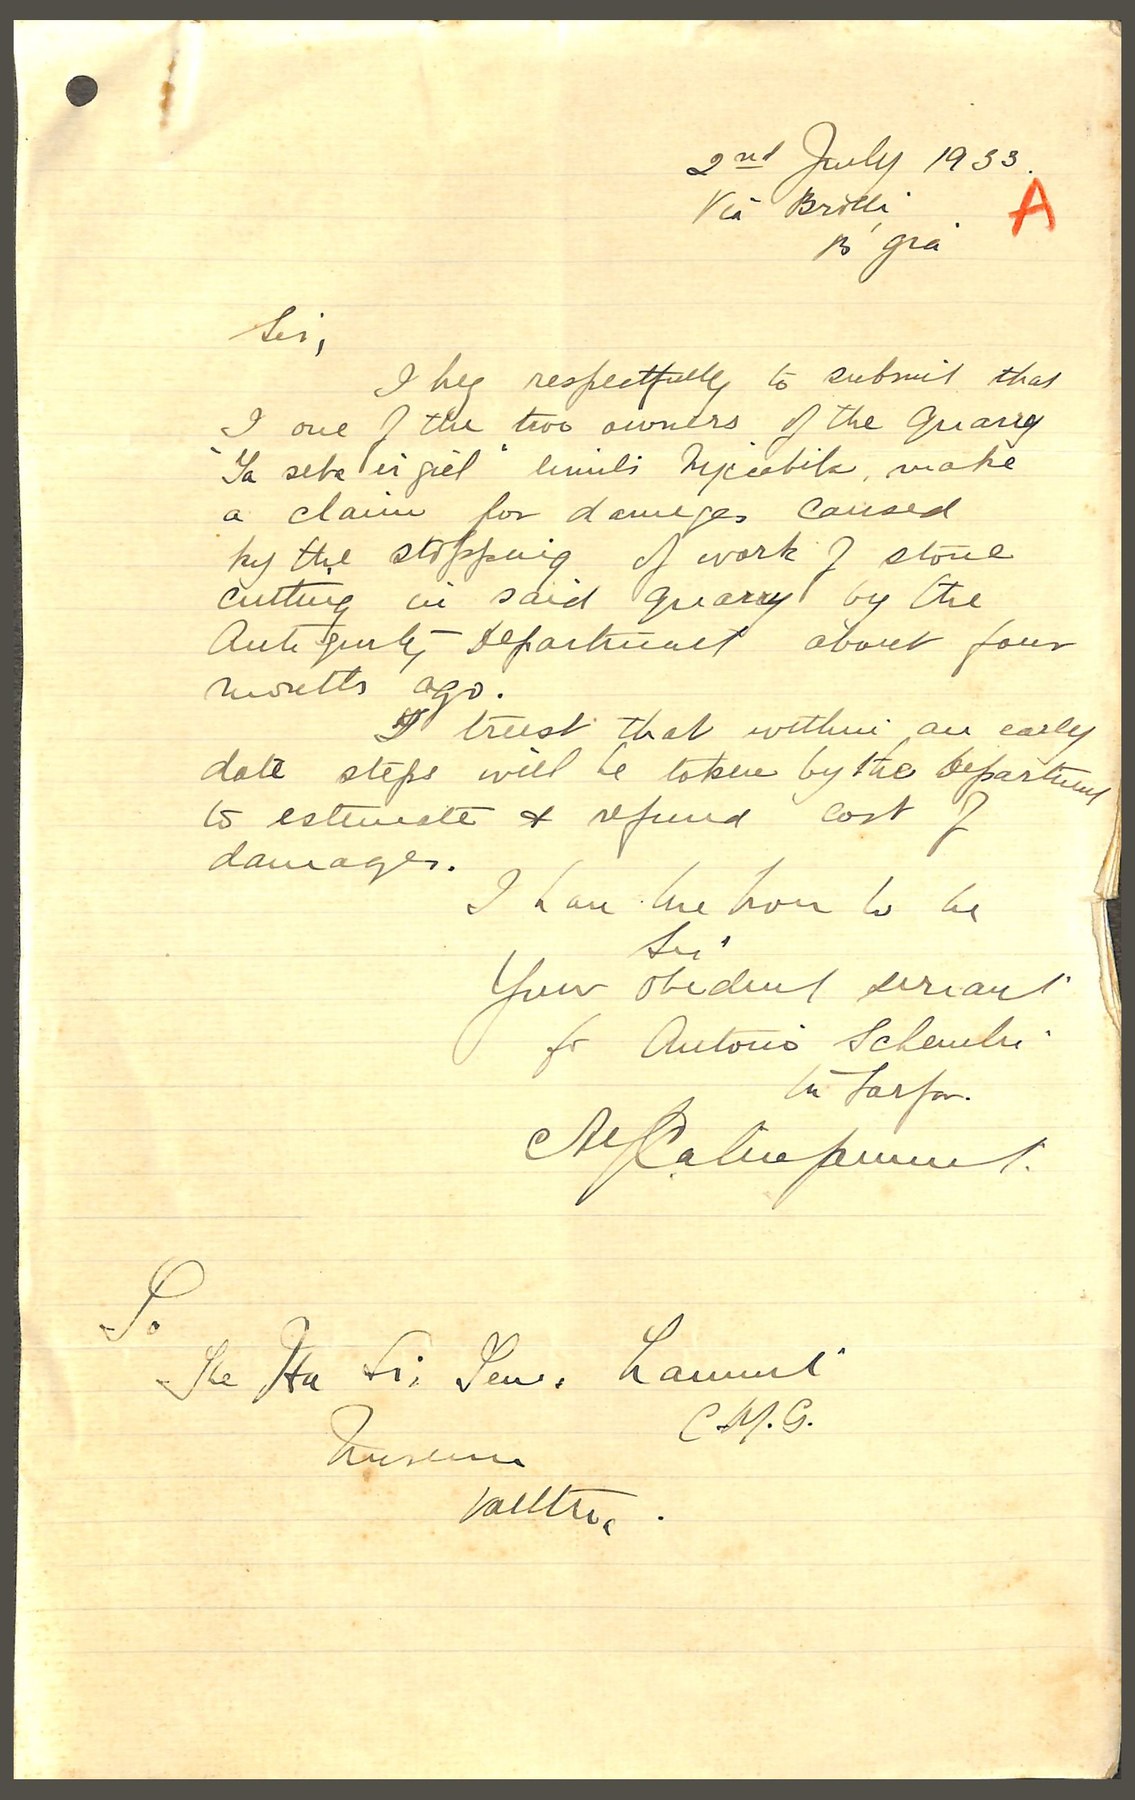 2nd July 1933.
A
Via Brolli
B'gia
Sir,
I beg respectfully to submit that
I one of the two owners of the Quarry
"Ta seba' irgiel" limits Mqiabba, make
a claim for damages caused
by the stopping of work of stone
cutting in said quarry by the
Antiquity Department about four
months ago.
I trust that within an early
date steps will be taken by the Department
to estimate & refund cost of
damages.
I have the honr to be
Sir
Your obedient servant
fr Antonio Schembri
To
The
Museum
C.M.G.
Valletta.